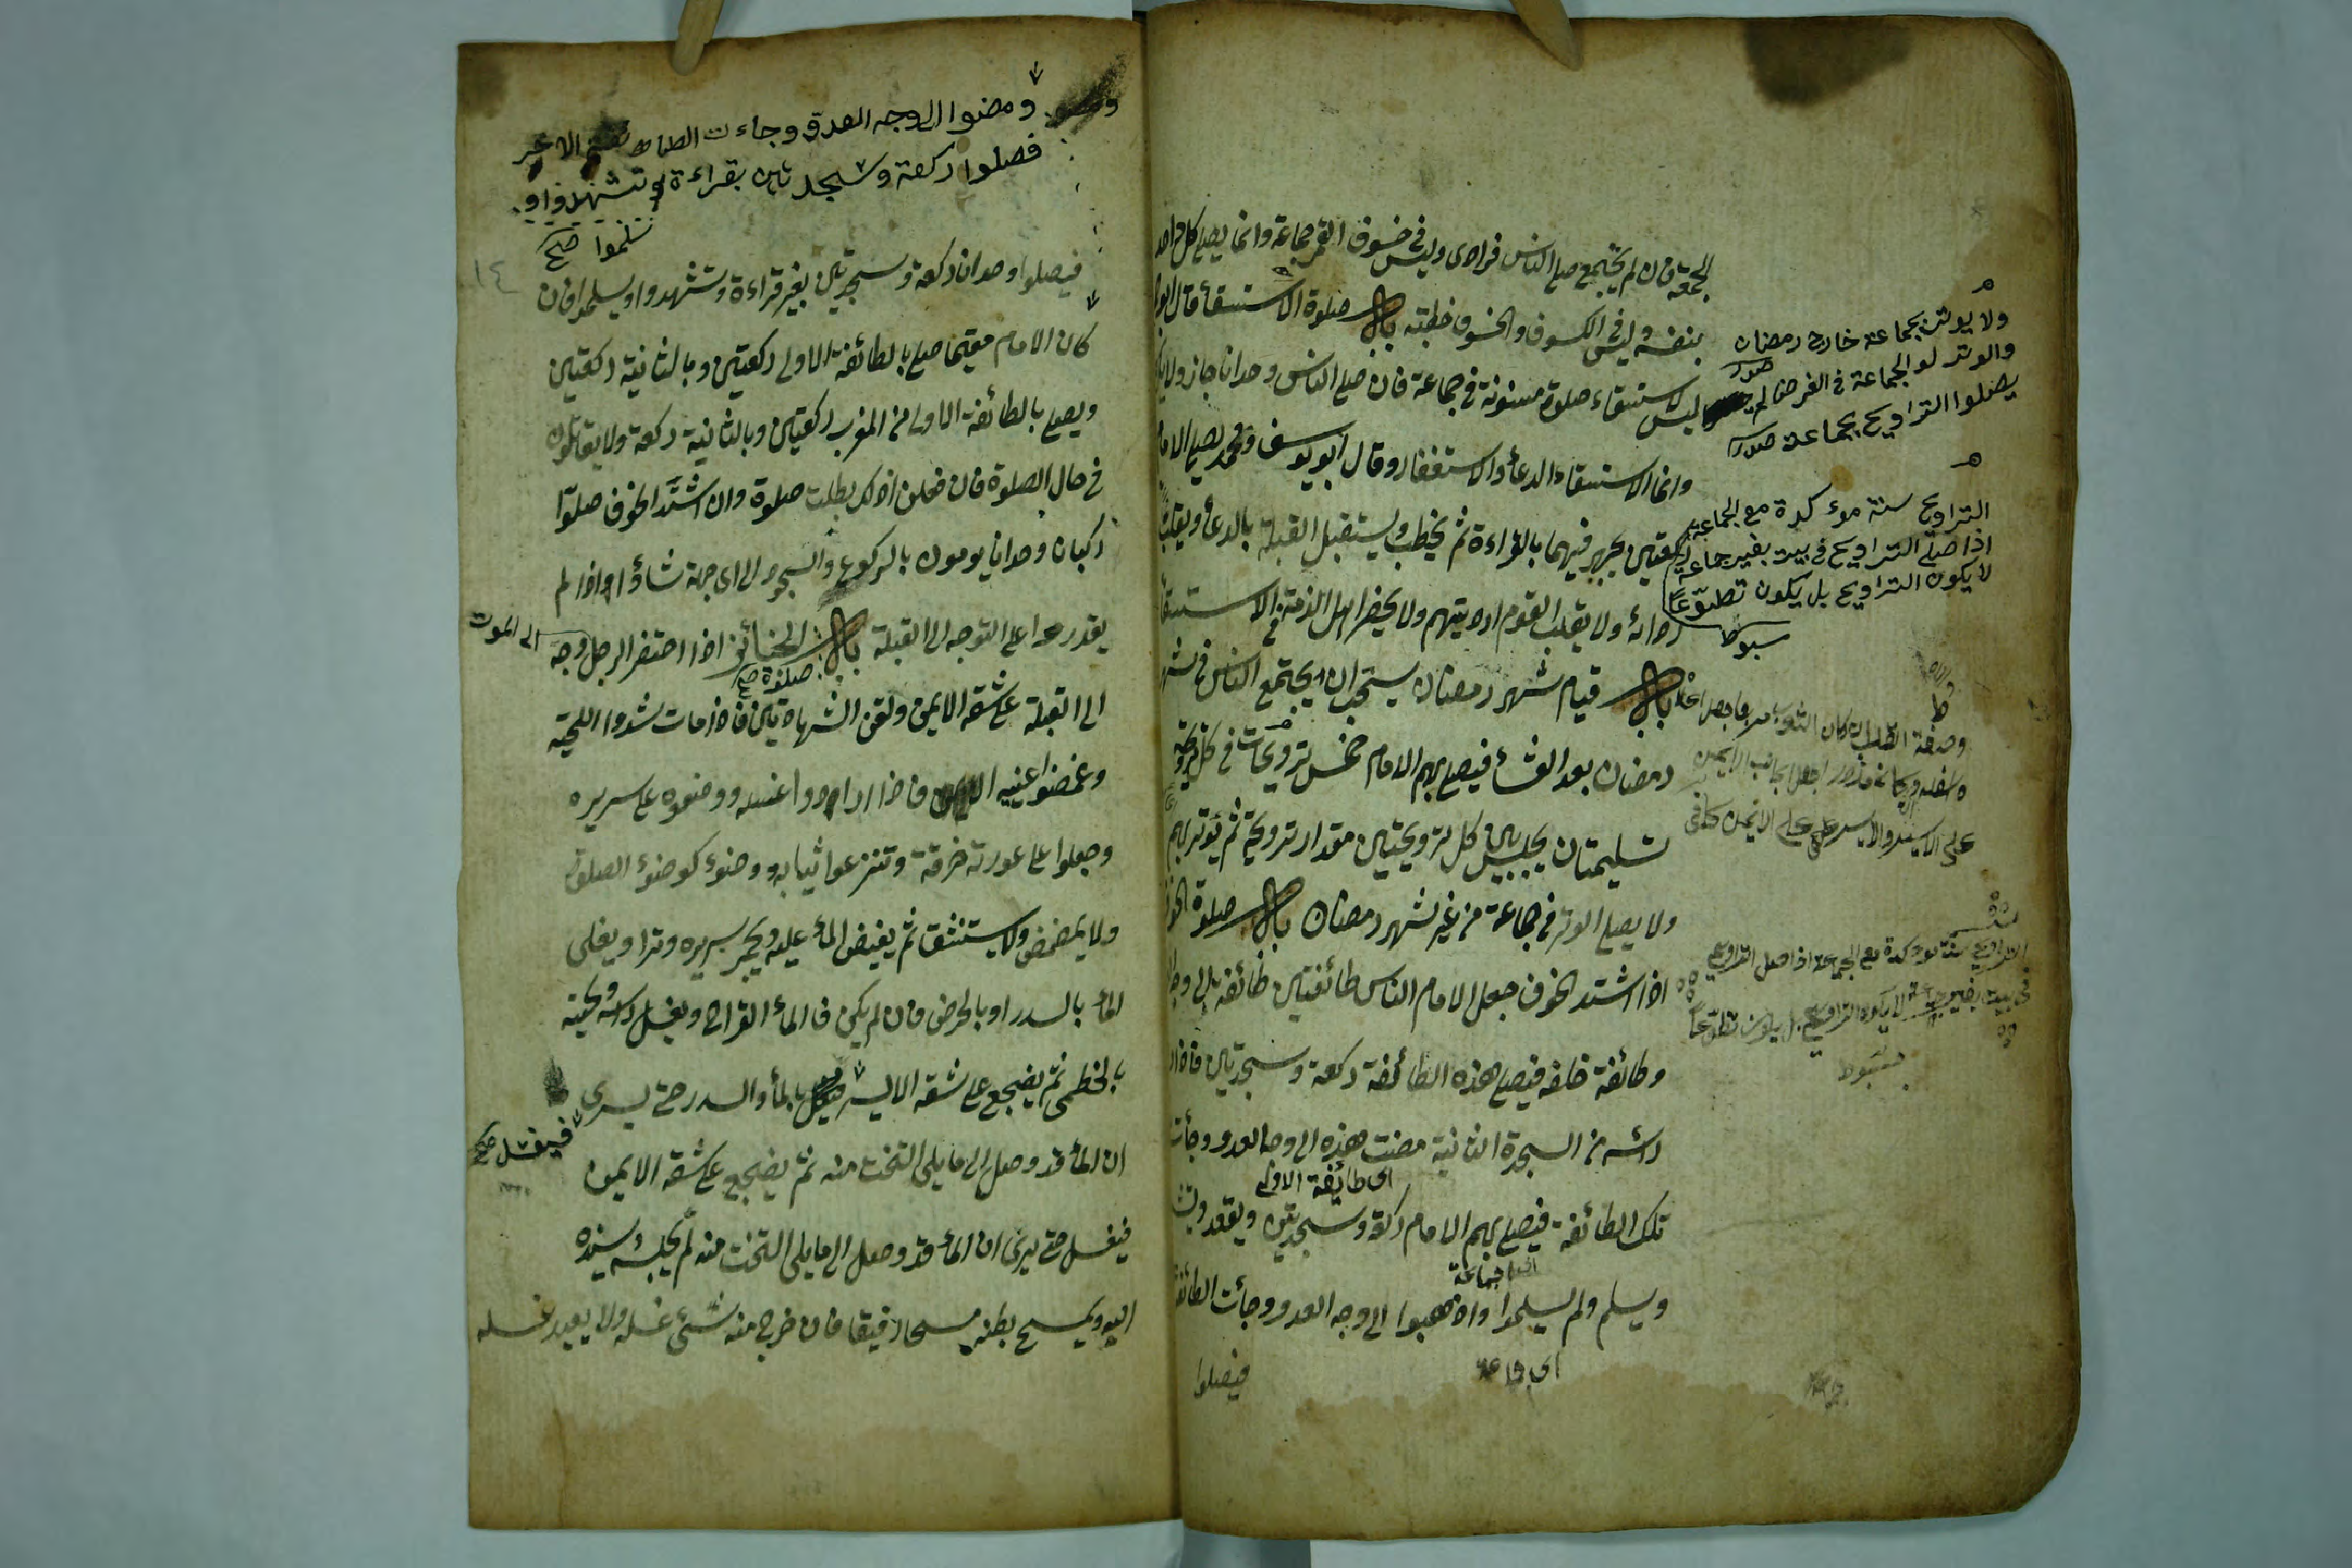 الجمعة فان لم يجتمع صلى الناس فرادى وليس في خسوف القمر جماعة وانما يصلى كل واحد
بنفسه وليس في الكسوف والخسوف خطبة باب صلوة الاستسقأ قال ابو
ليس لاستسقاء صلوة مسنونة في جماعة فان صلى الناس وحدانا جاز ولا
وانما الاستسقاء الدعأ والاستغفار وقال ابو يوسف ومحمد يصلى الامام
ركعتين يجهر فيهما بالقراءة ثم يخطب ويستقبل القبلة بالدعأ ويقلب
ردائه ولا يقلب القوم ارديتهم ولا يحضر اهل الذمة في الاستسقا
باب قيام شهر رمضان يستحب ان يجتمع الناس في شهر
رمضان بعد العشأ فيصلى بهم الامام خمس ترويحات في كل ترويحة
تسليمتان يجلس بين كل ترويحتين مقدار ترويحة ثم يوتر بهم
ولا يصلى الوتر في جماعة من غير شهر رمضان باب صلوة الخوف
اذا اشتد الخوف جعل الامام الناس طائفتين طائفة الى وجه
وطائفة خلفه فيصلى هذه الطائفة ركعة وسجدتين فاذا
رأسه من السجدة الثانية مضت هذه الى وجه العدو وجأت
اى طائفة الاولى
تلك الطائفة فيصلى بهم الامام ركعة وسجدتين ويقعد
ويسلم ولم يسلموا واذهبوا الى وجه العدو وجأت الطائفة
فيصلوا
ولا يوتر بجماعة خارج رمضان
والوتر لو الجماعة في الفرض لم
يصلوا التراويح بجماعة
التراويح سنة موءكدة مع الجماعة
اذا صلى التراويح في بيت بغير جماعة
لا يكون التراويح بل يكون تطوعا
على الايسر والايسر على الايمن
التراويح سنة موكدة مع الجماعة اذا صلى التراويح
في بيت بغير جماعة لا يكون التراويح بل يكون تطوعا
ومضوا الى وجه العدو وجاءت الطائفة
فصلوا ركعة وسجدتين بقراءة وتشهدوا و
سلموا صح
١٤
فيصلوا وحدانا ركعة وسجدتين بغير قراءة وتشهدوا ويسلموا فان
كان الامام مقيما صلى بالطائفة الاولى ركعتين وبالثانية ركعتين
ويصلى بالطائفة الاولى من المغرب ركعتين وبالثانية ركعة ولا يقاتلون
في حال الصلوة فان فعلن اذلك بطلت صلوة وان اشتد الخوف صلوا
ركبان وحدانا يومون بالركوع والسجود الى اى جهة شاؤا اذا لم
يقدروا على التوجه الى القبلة باب الجنائز اذا احتضر الرجل وجه
الى الموت
صلوة صح
الى القبلة على شقه الايمن ولقن الشهادتين فاذا مات شدوا اللحيته
وغمضوا عينيه فاذا ارادوا غسله ووضعوه على سريره
وجعلوا على عورته خرقة وتنزعوا ثيابه ووضوء كوضوء الصلوة
ولا يمضمض ولا يستنشق ثم يفيض المأ عليه ويجمر سريره وترا ويغلى
المأ بالسدر او بالحرض فان لم يكن فالمأ القراح ويغسل رأسه ولحيته
بالخطمى ثم يضجع على شقه الايسر بالمأ والسدر حتى يرى
فيغسل صح
ان المأ قد وصل الى ما يلى التخت منه ثم يضجع على شقه الايمن
فيغسل حتى يرى ان المأ قد وصل الى ما يلى التخت منه ثم يجلسه يسنده
اليه ويمسح بطنه مسحا رفيقا فان خرج منه شئ غسله ولا يعيد غسله